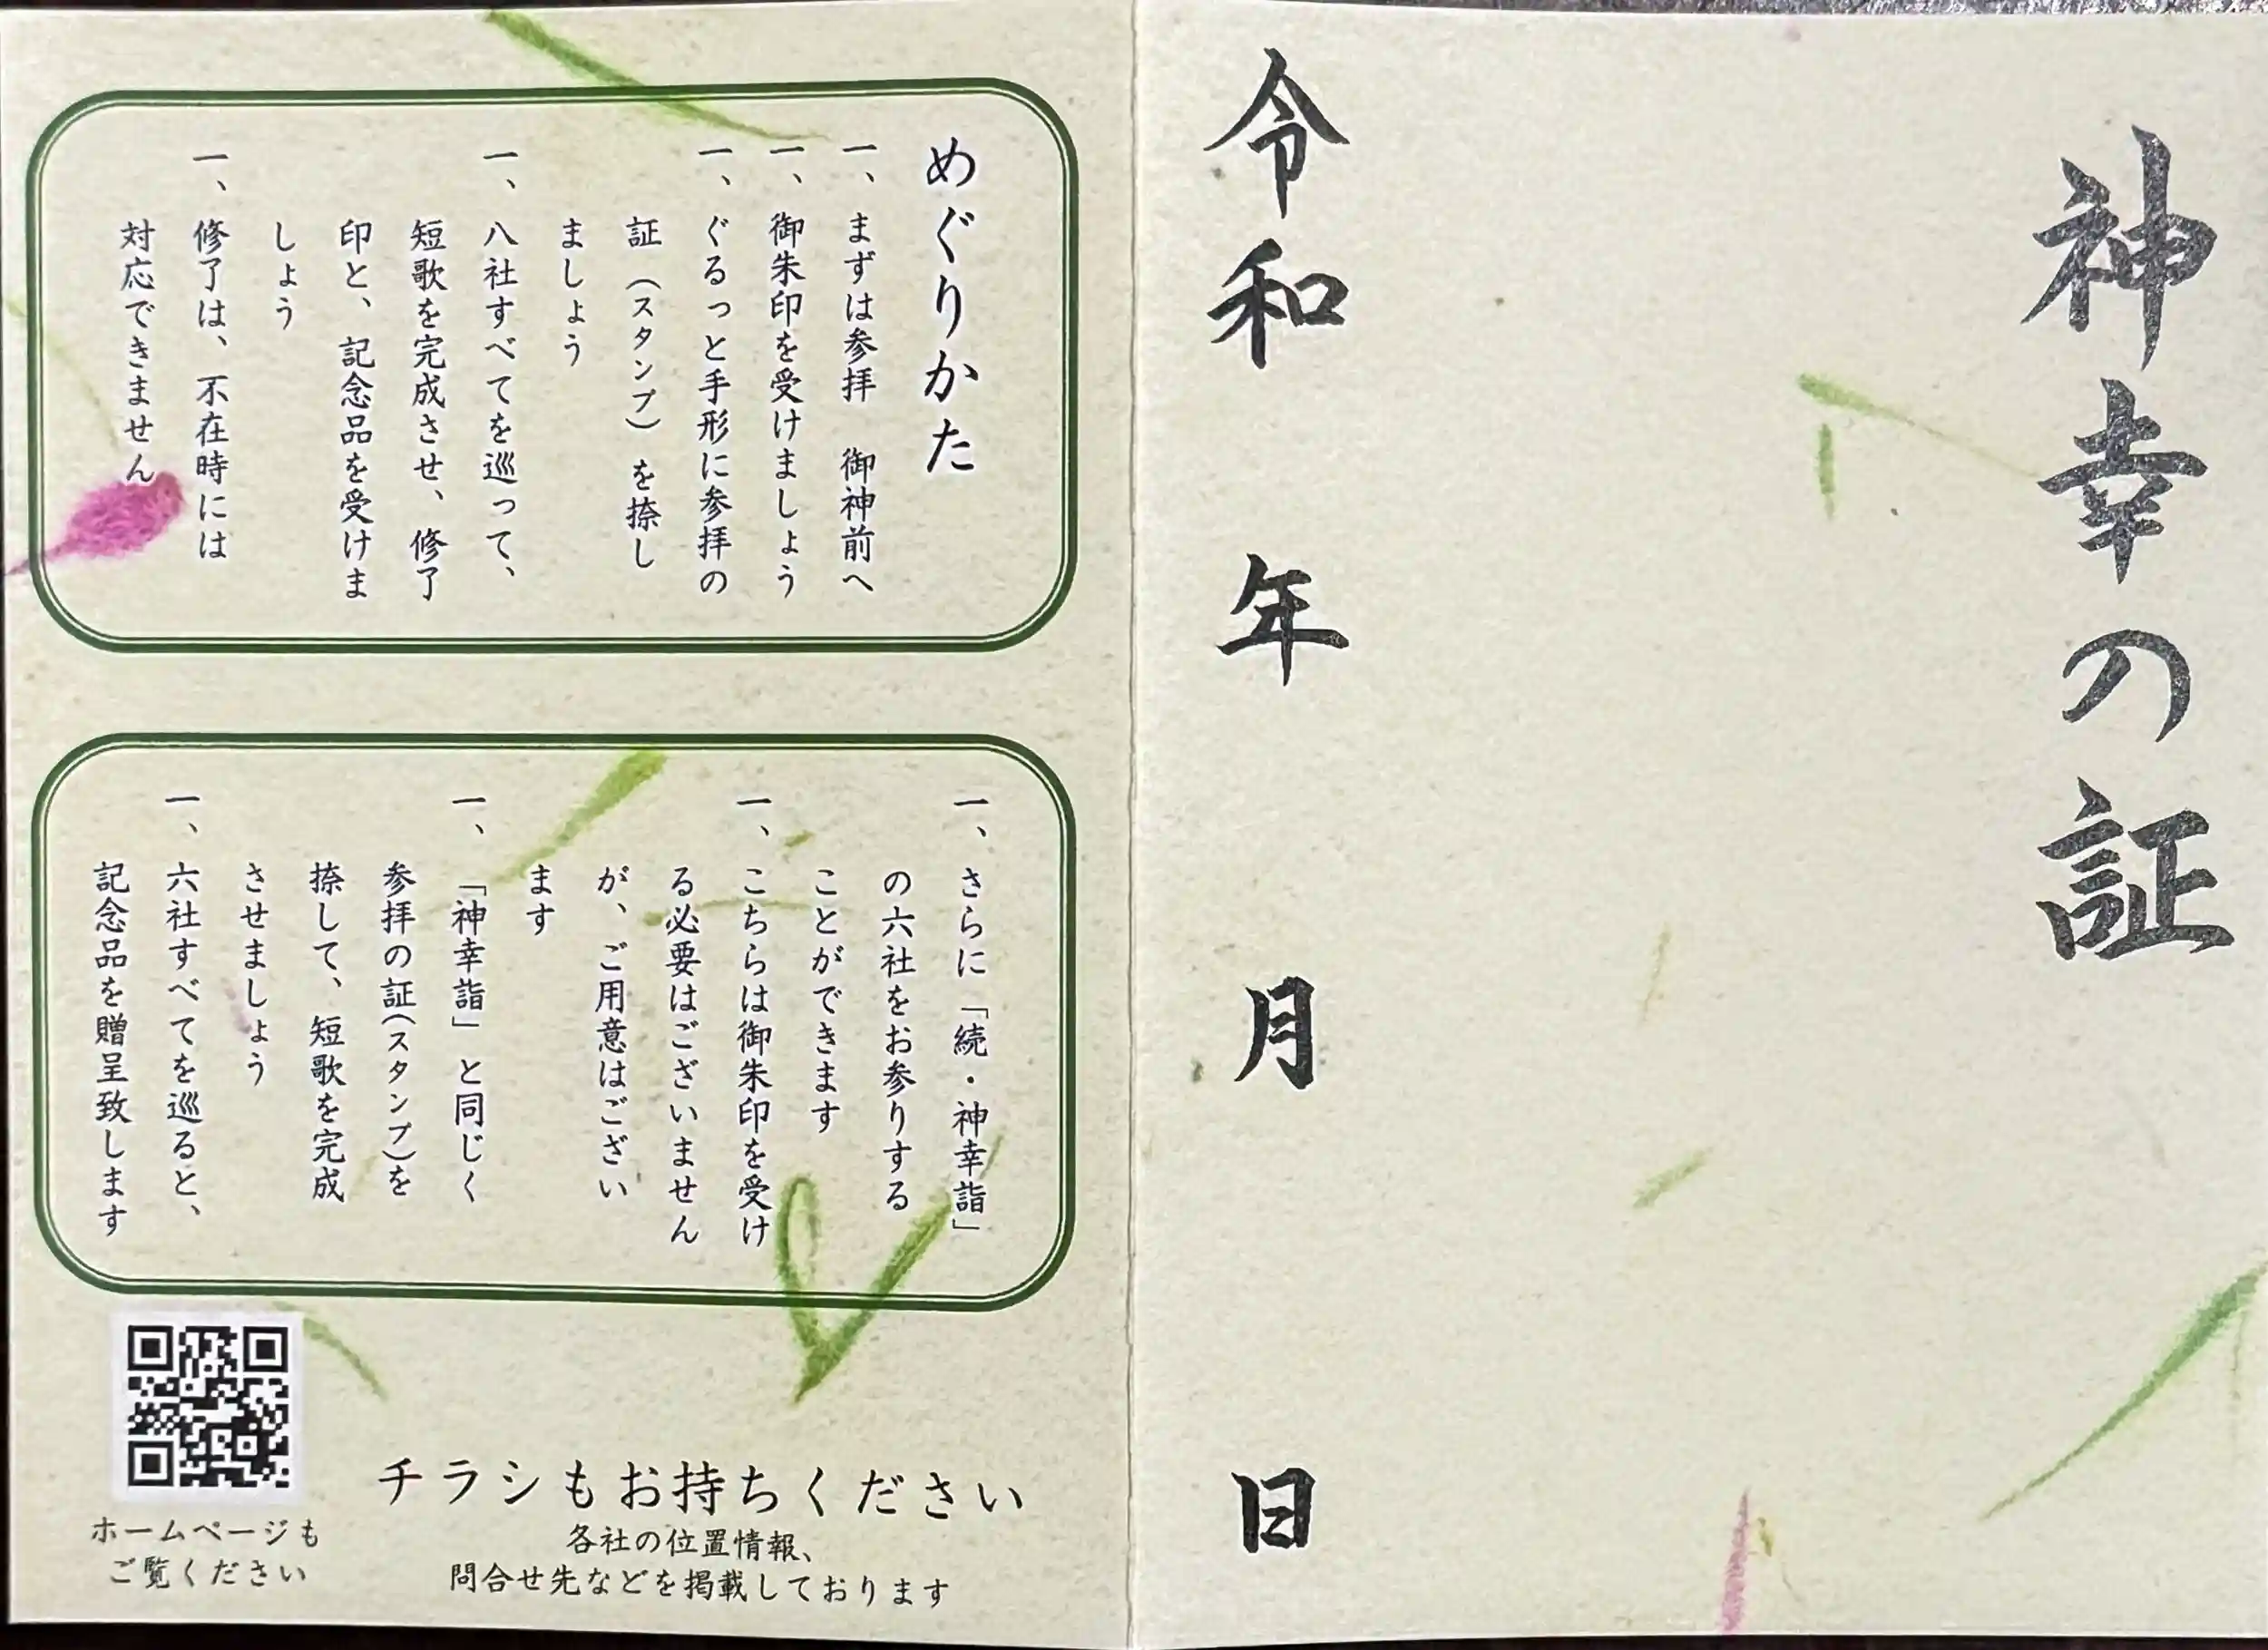 神幸の証
令和　年　月　日
めぐりかた
一、まずは参拝　御神前へ
一、御朱印を受けましょう
一、ぐるっと手形に参拝の
証（スタンプ）を捺し
ましょう
一、八社すべてを巡って、
短歌を完成させ、修了
印と、記念品を受けま
しょう
一、修了は、不在時には
対応できません
一、さらに「続・神幸詣」
の六社をお参りする
ことができます
一、こちらは御朱印を受け
る必要はございません
が、ご用意はござい
ます
一、「神幸詣」と同じく
参拝の証（スタンプ）を
捺して、短歌を完成
させましょう
一、六社すべてを巡ると、
記念品を贈呈致します
チラシもお持ちください
各社の位置情報、
問合せ先などを掲載しております
ホームページも
ご覧ください